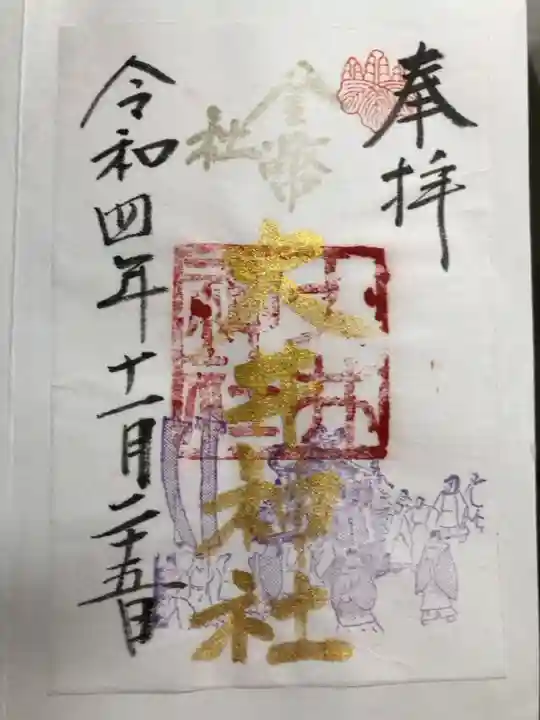 奉拝
金幣
社
大井神社
令和四年十一月二十五日